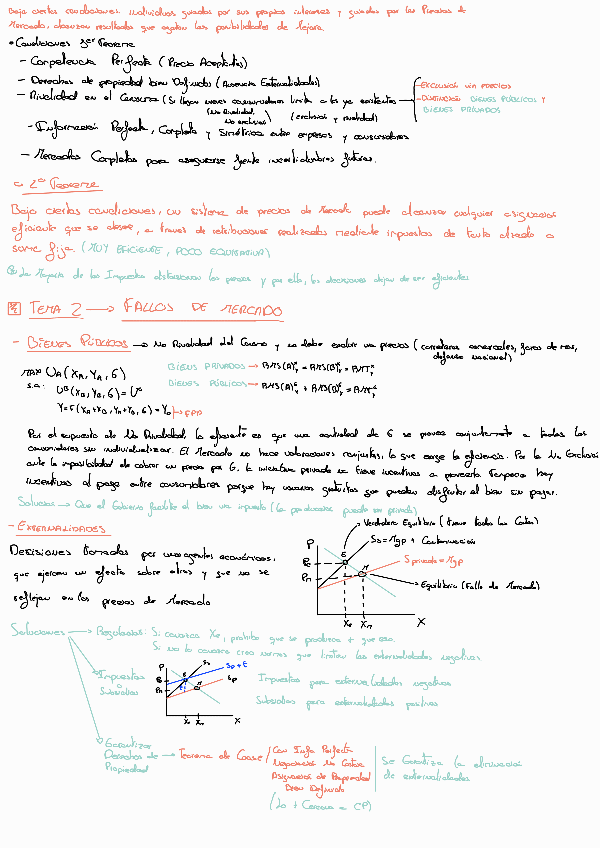 Bajo ciertas condiciones. Individuos guiados por sus propios intereses y guiados por los Precios de
Mercado, alcanzan resultados que agotan las posibilidades de Mejora.
• Condiciones 1er Teorema
- Competencia Perfecta (Precio Aceptantes)
- Derechos de propiedad bien Definidos (Ausencia Externalidades)
- Rivalidad en el Consumo (Si llegan nuevos consumidores limita a los ya existentes)
(No Rivalidad, No exclusión) (exclusión y rivalidad)
- EXCLUSIÓN VÍA PRECIOS
- DISTINCIÓN BIENES PÚBLICOS Y
BIENES PRIVADOS
- Información Perfecta, Completa y Simétrica entre empresas y consumidores
- Mercados Completos para asegurarse frente incertidumbres futuras.
2º Teorema
Bajo ciertas condiciones, un sistema de precios de Mercado puede alcanzar cualquier asignación
eficiente que se desee, a través de retribuciones realizadas mediante impuestos de tanto alzado o
suma fija. (MUY EFICIENTE, POCO EQUITATIVA)
La Mayoría de los Impuestos distorsionan los precios y por ello, las decisiones dejan de ser eficientes
TEMA 2 → FALLOS DE MERCADO
- BIENES PÚBLICOS → No Rivalidad del Consumo y no debe excluir vía precios (carreteras comarcales, faros de mar,
defensa nacional)
MAX UA (XA, YA, G)
s.a:
UB (XB, YB, G) = U⁰
Y = F(XA+XB, YA+YB, G) = Y₀ → FPP
BIENES PRIVADOS →
BIENES PÚBLICOS →
Por el supuesto de No Rivalidad, lo eficiente es que una cantidad de G se provea conjuntamente a todos los
consumidores sin individualizar. El Mercado no hace valoraciones conjuntas, lo que exige la eficiencia. Por la No Exclusión
ante la imposibilidad de cobrar un precio por G, la iniciativa privada no tiene incentivos a proveerla. Tampoco hay
incentivos al pago entre consumidores porque hay usuarios gratuitos que pueden disfrutar el bien sin pagar.
Solución → Que el Gobierno facilite el bien vía impuesto (la producción puede ser privada)
- EXTERNALIDADES
Decisiones tomadas por unos agentes económicos,
que ejercen un efecto sobre otros y que no se
reflejan en los precios de Mercado
Verdadero Equilibrio (Tiene todos los Costes)
Ss = Mgp + Contaminación
S privada = Mgp
Equilibrio (Fallo de Mercado)
P
E
Pe
Pm
M
Xe Xm
X
Soluciones → Regularlas: Si conozco Xe, prohíbo que se produzca + que eso.
Si no lo conozco creo normas que limiten las externalidades negativas
Impuestos
o
Subsidios
P
Pe
Pm
Ss
Sp + t
Sp
E
M
Xe Xm
X
Impuestos para externalidades negativas
Subsidios para externalidades positivas
Garantizar
Derechos de
Propiedad
→ Teorema de Coase
Con Info Perfecta
Negociación No Costosa
Asignación de Propiedad
Bien Definida
(Lo + Cercano a CP)
Se Garantiza la eliminación
de externalidades